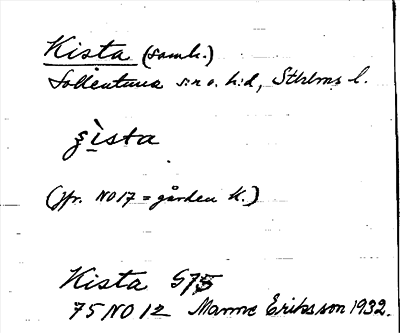 Kista (samh.)
Sollentuna sn o. h:d, Sthlms l.
ʂì̱sta
(jfr. NO17 = gården K.)
Kista S75
75 NO 12 Manne Eriksson 1932.